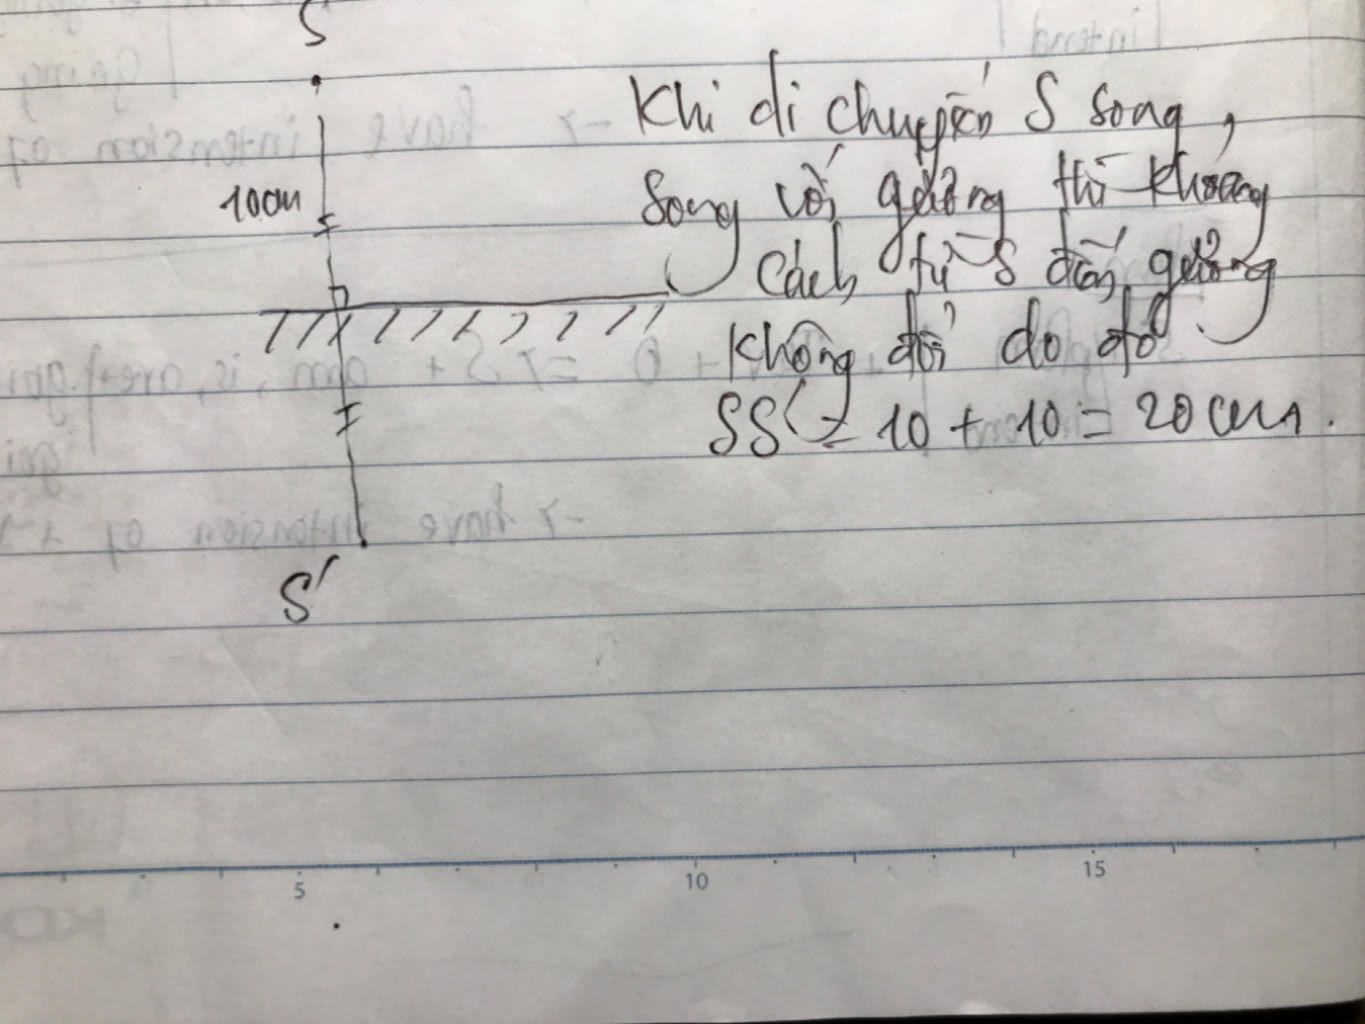 S
10cm
Khi di chuyển S song
song với gương thì khoảng
cách từ S đến gương
không đổi do đó
SS' = 10 + 10 = 20 cm.
S'
5 10 15